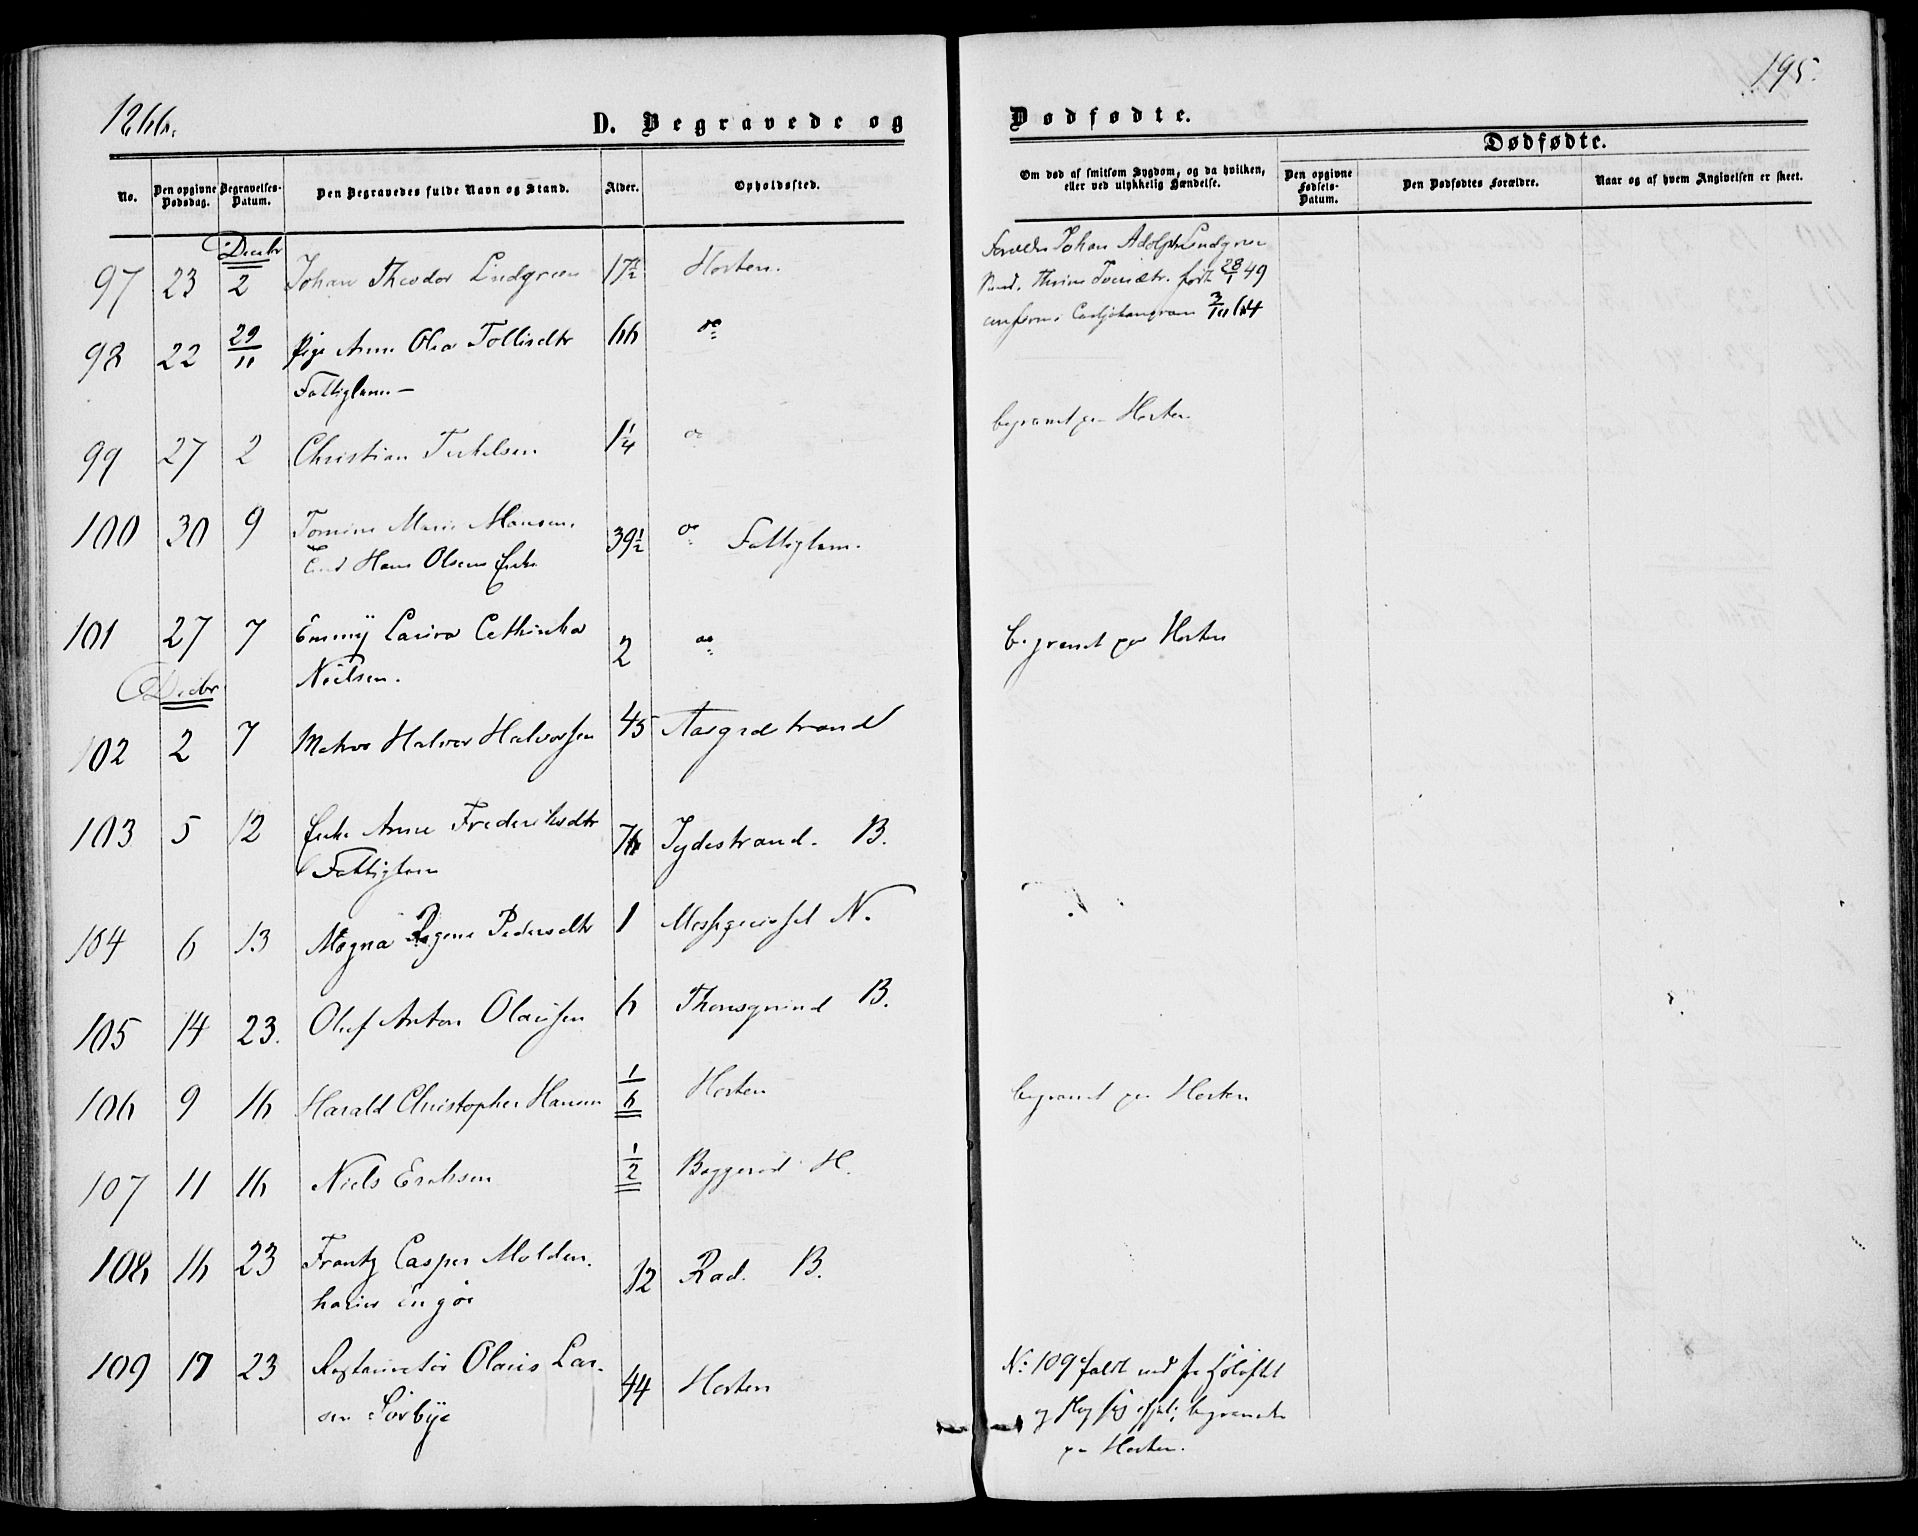 1866.
D. Begravede og
Dødfødte.
195.
No.
Den opgivne Dødsdag.
Begravelses-Datum.
Den Begravedes fulde Navn og Stand.
Alder.
Opholdssted.
Om død af smitsom Sygdom, og da hvilken, eller ved ulykkelig Hændelse.
Dødfødte.
Den opgivne Fødsels-Datum.
Den Dødfødtes Forældre.
Naar og af hvem Angivelsen er skeet.
Decbr
97 23 2 Johan Theodor Lindgreen 17 1/2 Horten.
Forældre Johan Adolph Lindgreen
født 28/1 49
confirm. Carljohansværn 64
98 22 29/11 Pige Anne Olea Tollisdtr 66 do
Fattiglem.
99 27 2 Christian Terkelsen 1 1/4 do
begravet paa Horten.
100 30 9 Tomine Marie Hansen. 39 1/2 do Fattiglem.
Hans Olsens Enke
101 27 7 Emmy Laura Cathinka 2 do
Nielsen.
begravet paa Horten
Decbr.
102 2 7 Matros Halvor Halvorsen 45 Aasgaardstrand
103 5 12 Enke Anne Frederiksdtr 76 Sydestrand. B.
Fattiglem
104 6 13 Magna Regine Pedersdtr 1 N.
105 14 23. Oluf Anton Olausen 6 B.
106 9 16 Harald Christopher Hansen 1/6 Horten
begravet paa Horten
107 11 16 Niels Erichsen 1/2 Baggerød H.
108 16 23 Frantz Casper Molden-
hauer Engøe 12 Rød. B.
109 17 23 Restauratør Olaus Lar-
sen Sørbye 44 Horten
No 109 faldt ned fra Høloftet
og slog sig ihjel; begravet
paa Horten.